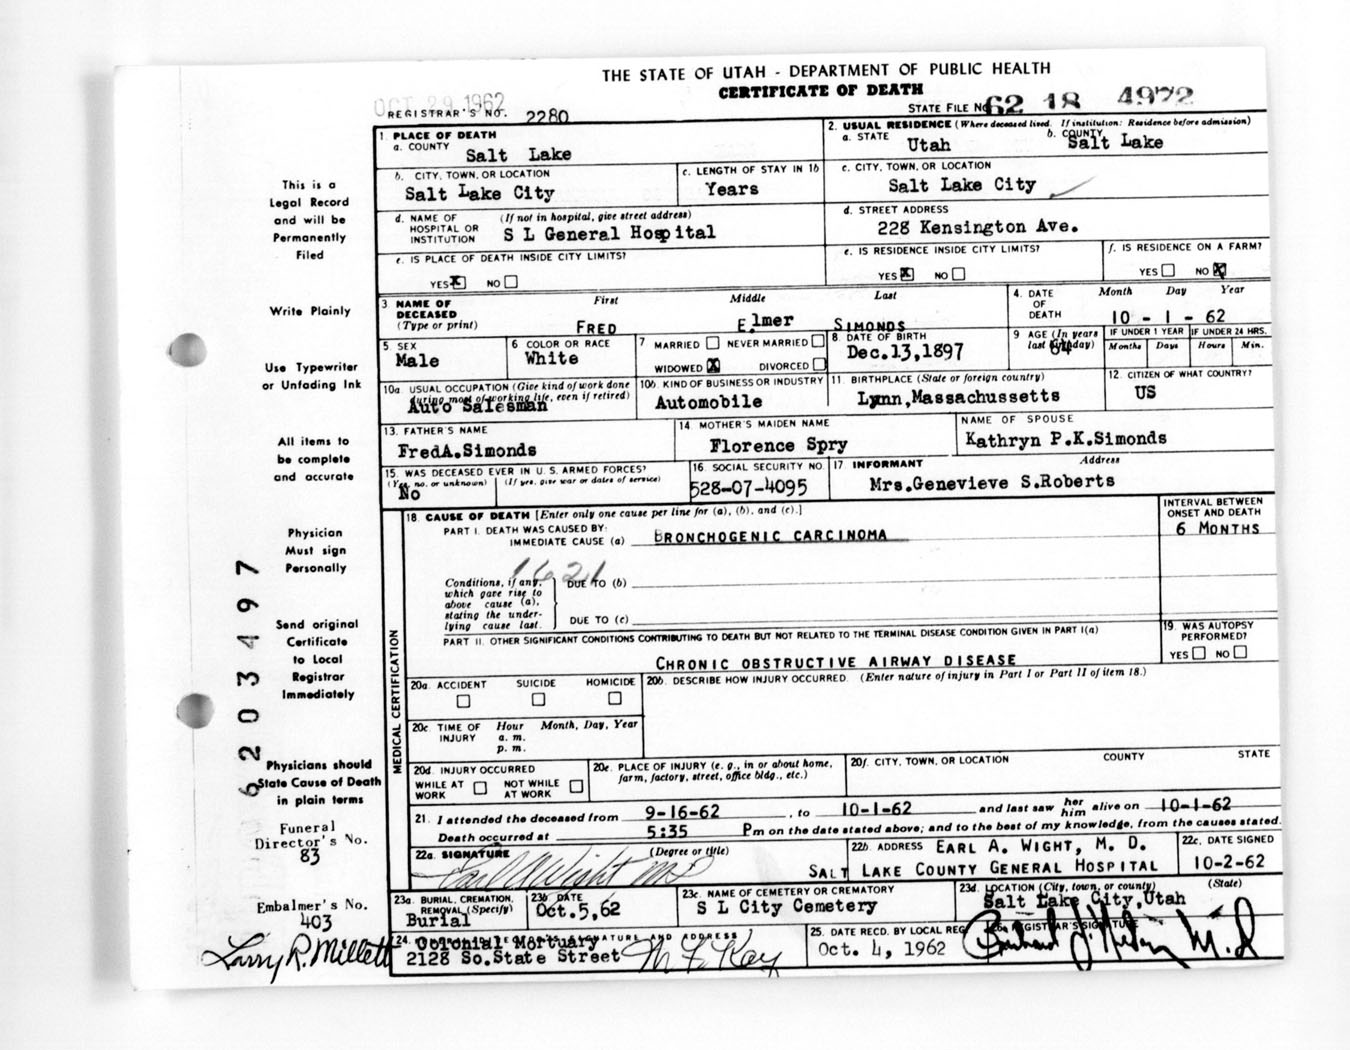 THE STATE OF UTAH - DEPARTMENT OF PUBLIC HEALTH
CERTIFICATE OF DEATH
OCT 29 1962
REGISTRAR'S NO. 2280
STATE FILE NO. 62 18 4972
1. PLACE OF DEATH
a. COUNTY Salt Lake
2. USUAL RESIDENCE (Where deceased lived. If institution: Residence before admission)
a. STATE Utah
b. COUNTY Salt Lake
b. CITY, TOWN, OR LOCATION
Salt Lake City
c. LENGTH OF STAY IN 1b
Years
c. CITY, TOWN, OR LOCATION
Salt Lake City
d. NAME OF HOSPITAL OR INSTITUTION (If not in hospital, give street address)
S L General Hospital
d. STREET ADDRESS
228 Kensington Ave.
e. IS PLACE OF DEATH INSIDE CITY LIMITS?
YES X NO
e. IS RESIDENCE INSIDE CITY LIMITS?
YES X NO
f. IS RESIDENCE ON A FARM?
YES NO X
3. NAME OF DECEASED (Type or print)
First Middle Last
FRED Elmer SIMONDS
4. DATE OF DEATH
Month Day Year
10 - 1 - 62
5. SEX
Male
6. COLOR OR RACE
White
7. MARRIED NEVER MARRIED
WIDOWED X DIVORCED
8. DATE OF BIRTH
Dec.13,1897
9. AGE (In years last birthday)
64
IF UNDER 1 YEAR
Months Days
IF UNDER 24 HRS.
Hours Min.
10a. USUAL OCCUPATION (Give kind of work done during most of working life, even if retired)
Auto Salesman
10b. KIND OF BUSINESS OR INDUSTRY
Automobile
11. BIRTHPLACE (State or foreign country)
Lynn,Massachussetts
12. CITIZEN OF WHAT COUNTRY?
US
13. FATHER'S NAME
FredA.Simonds
14. MOTHER'S MAIDEN NAME
Florence Spry
NAME OF SPOUSE
Kathryn P.K.Simonds
15. WAS DECEASED EVER IN U.S. ARMED FORCES?
(Yes, no, or unknown) (If yes, give war or dates of service)
No
16. SOCIAL SECURITY NO.
528-07-4095
17. INFORMANT Address
Mrs.Genevieve S.Roberts
MEDICAL CERTIFICATION
18. CAUSE OF DEATH [Enter only one cause per line for (a), (b), and (c).]
INTERVAL BETWEEN ONSET AND DEATH
PART I. DEATH WAS CAUSED BY:
IMMEDIATE CAUSE (a) BRONCHOGENIC CARCINOMA
6 MONTHS
1621
Conditions, if any, which gave rise to above cause (a), stating the underlying cause last.
DUE TO (b)
DUE TO (c)
PART II. OTHER SIGNIFICANT CONDITIONS CONTRIBUTING TO DEATH BUT NOT RELATED TO THE TERMINAL DISEASE CONDITION GIVEN IN PART I(a)
CHRONIC OBSTRUCTIVE AIRWAY DISEASE
19. WAS AUTOPSY PERFORMED?
YES NO
20a. ACCIDENT SUICIDE HOMICIDE
20b. DESCRIBE HOW INJURY OCCURRED. (Enter nature of injury in Part I or Part II of item 18.)
20c. TIME OF INJURY
Hour Month, Day, Year
a. m.
p. m.
20d. INJURY OCCURRED
WHILE AT WORK NOT WHILE AT WORK
20e. PLACE OF INJURY (e. g., in or about home, farm, factory, street, office bldg., etc.)
20f. CITY, TOWN, OR LOCATION COUNTY STATE
21. I attended the deceased from 9-16-62, to 10-1-62 and last saw her him alive on 10-1-62
Death occurred at 5:35 Pm on the date stated above; and to the best of my knowledge, from the causes stated.
22a. SIGNATURE (Degree or title)
Earl A Wight MD
22b. ADDRESS EARL A. WIGHT, M. D.
SALT LAKE COUNTY GENERAL HOSPITAL
22c. DATE SIGNED
10-2-62
23a. BURIAL, CREMATION, REMOVAL (Specify)
Burial
23b. DATE
Oct.5,62
23c. NAME OF CEMETERY OR CREMATORY
S L City Cemetery
23d. LOCATION (City, town, or county) (State)
Salt Lake City,Utah
24. SIGNATURE AND ADDRESS
Colonial Mortuary
2128 So.State Street
25. DATE RECD. BY LOCAL REG.
Oct. 4, 1962
REGISTRAR'S SIGNATURE
This is a
Legal Record
and will be
Permanently
Filed
Write Plainly
Use Typewriter
or Unfading Ink
All items to
be complete
and accurate
Physician
Must sign
Personally
Send original
Certificate
to Local
Registrar
Immediately
Physicians should
State Cause of Death
in plain terms
Funeral
Director's No.
83
Embalmer's No.
403
Larry R. Millett
6203497